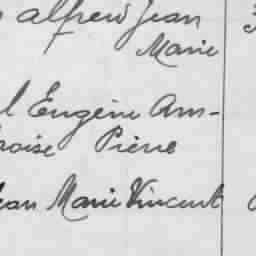 Alfred Jean
Marie
Eugène Am-
broise Pierre
Jean Marie Vincent